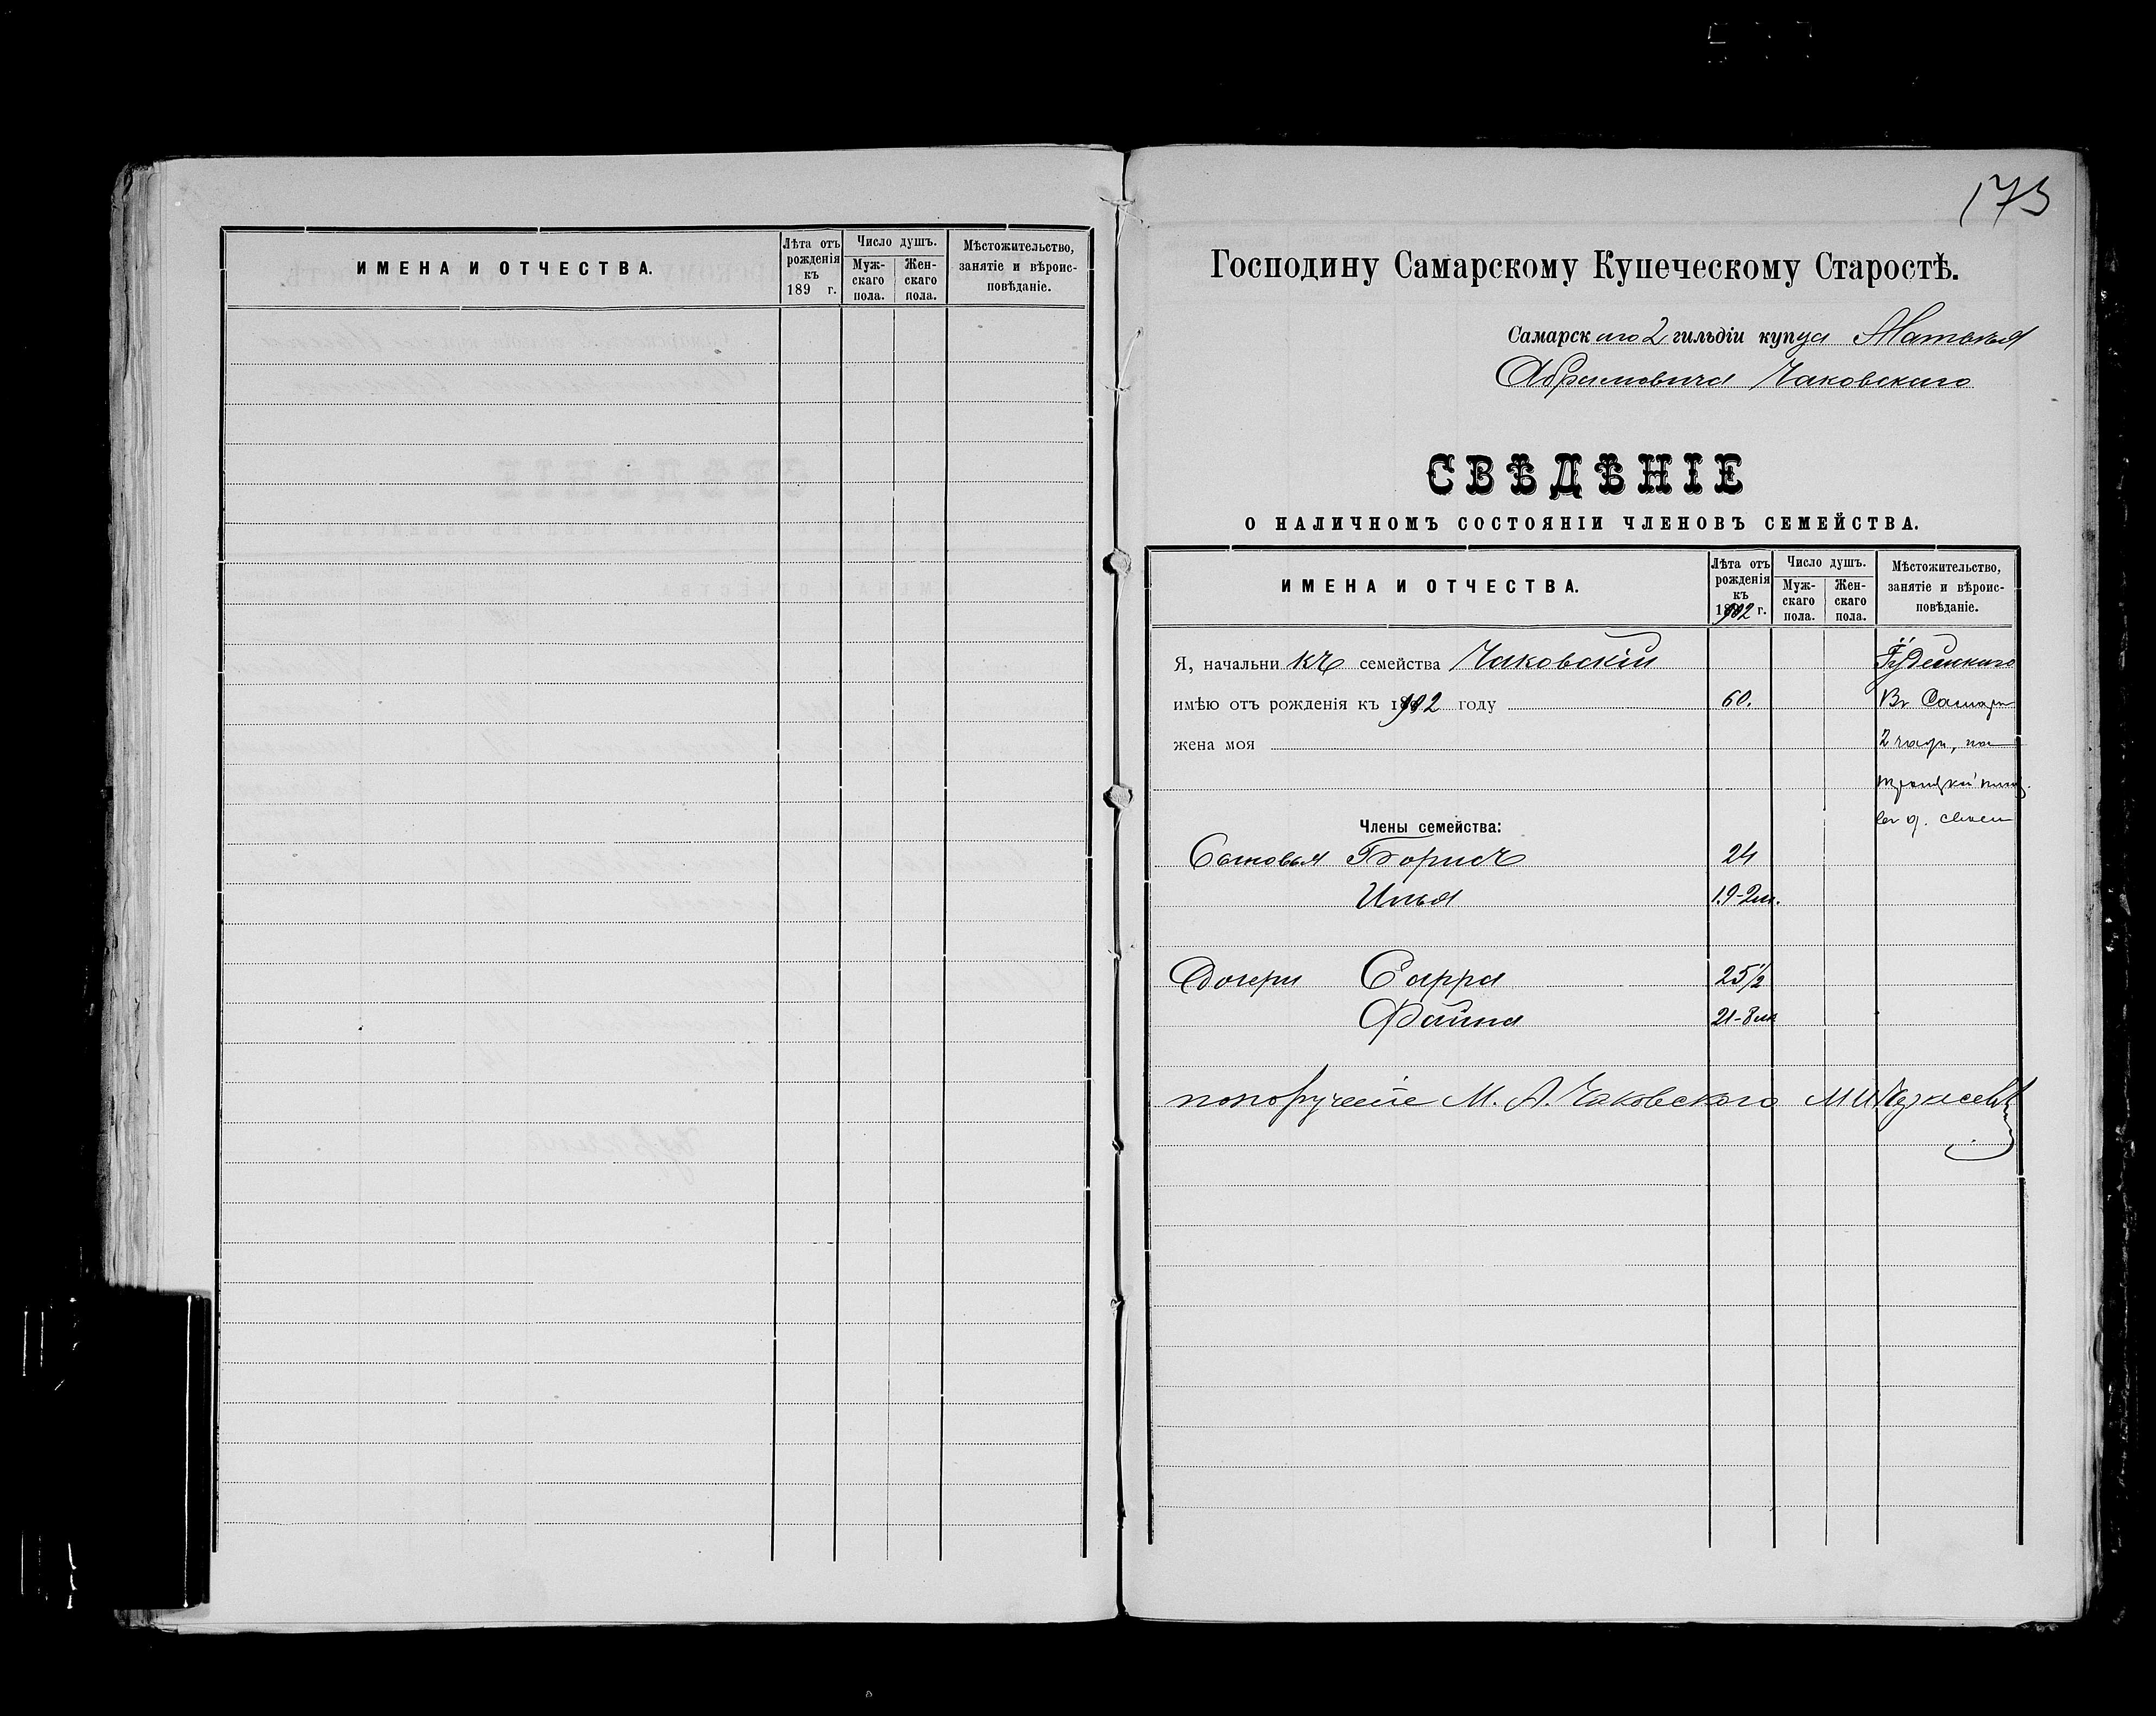 ИМЕНА И ОТЧЕСТВА.
Лѣта отъ рожденія къ 189 г.
Число душъ.
Мужскаго пола.
Женскаго пола.
Мѣстожительство, занятіе и вѣроисповѣданіе.
173
Господину Самарскому Купеческому Старостѣ.
Самарскаго 2 гильдіи купца Матвѣя
Абрамовича Чаковскаго
СВѢДѢНІЕ
О НАЛИЧНОМЪ СОСТОЯНІИ ЧЛЕНОВЪ СЕМЕЙСТВА.
ИМЕНА И ОТЧЕСТВА.
Лѣта отъ рожденія къ 1902 г.
Число душъ.
Мужскаго пола.
Женскаго пола.
Мѣстожительство, занятіе и вѣроисповѣданіе.
Я, начальникъ семейства Чаковскій Іудейскаго
имѣю отъ рожденія къ 1902 году 60. Въ Самарѣ
жена моя 2 части, на
Троицкой
въ д. своем
Члены семейства:
Сыновья Борисъ 24
Илья 19-2м.
Дочери Сарра 25½
Фаина 21-8м
по порученіе М. А. Чаковского М